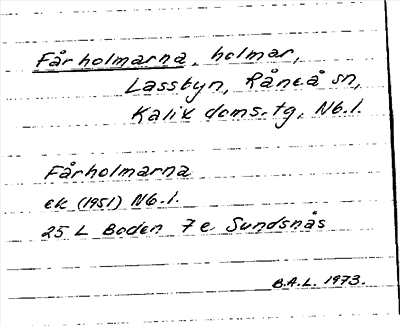 Fårholmarna, holmar,
Lassbyn, Råneå sn,
Kalix doms.tg, Nb.l.
Fårholmarna
ek (1951) Nb.l.
25 L Boden 7 e. Sundsnås
B.A.L. 1973.